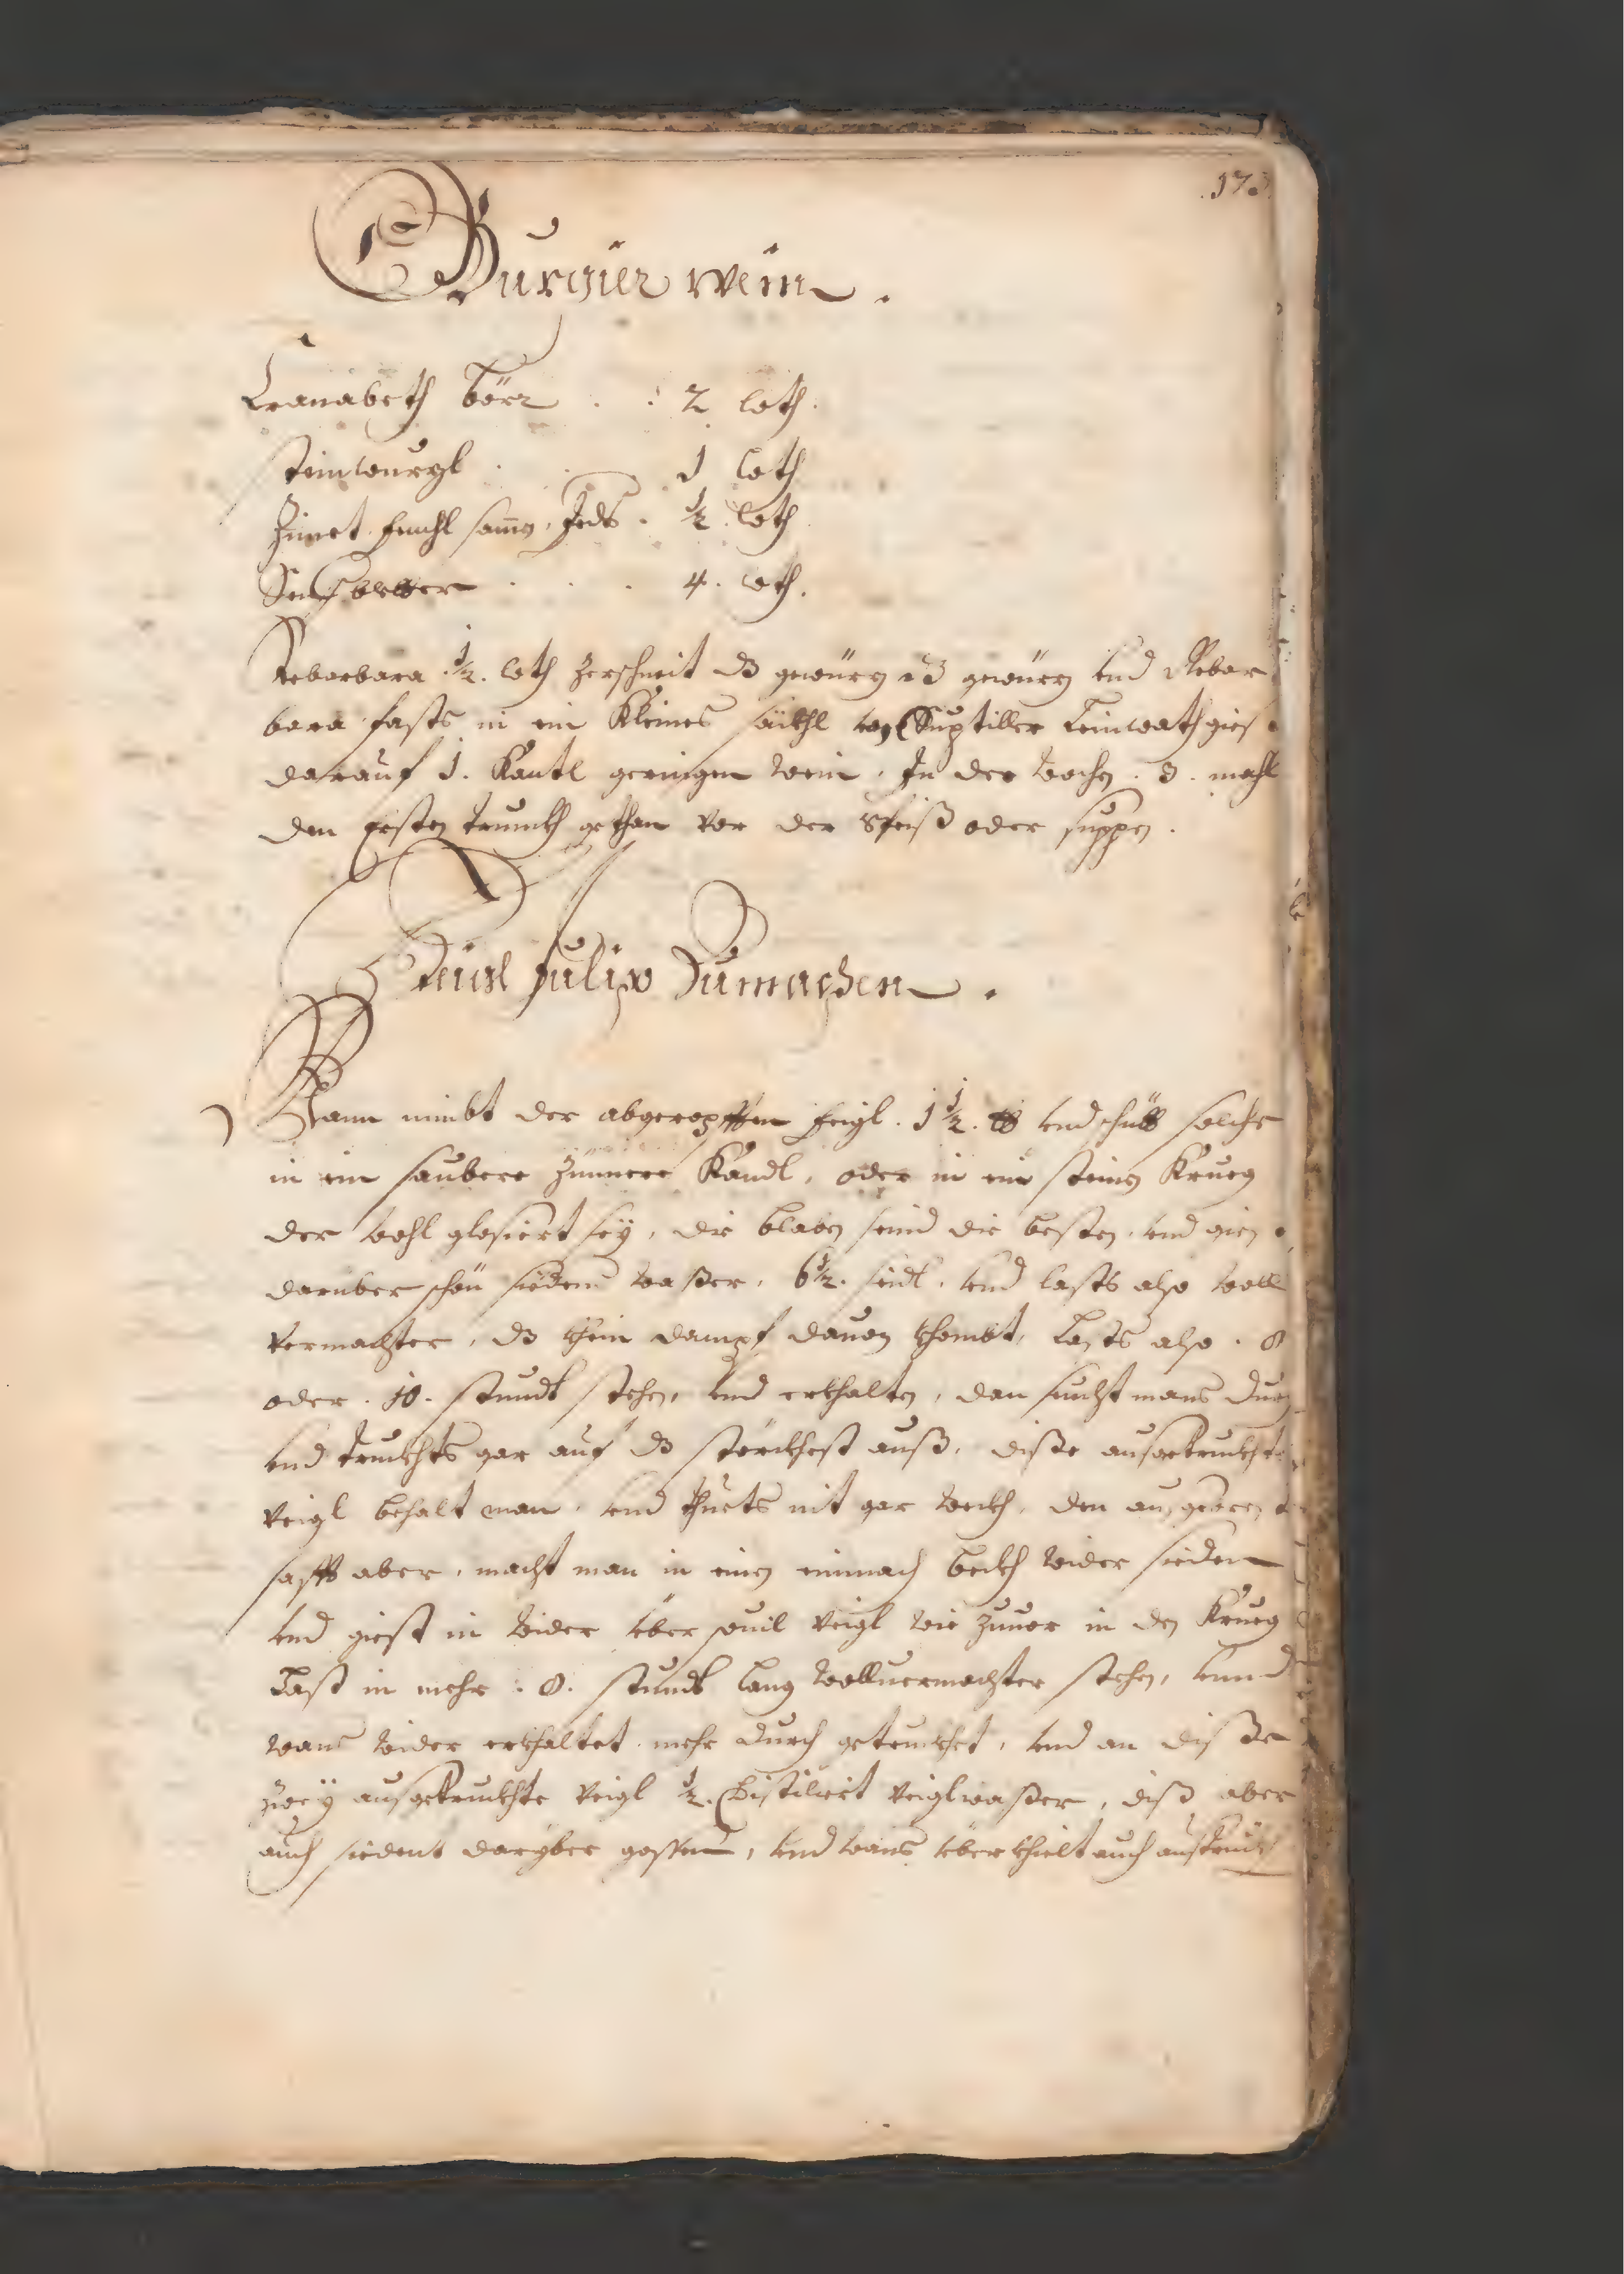 173
Purgier wein.
Cranabeth bör . : 2 loth.
steinwurzl . . 1 loth
Zimet fenchl samen, Jedes . ½ loth
Senet bletter . . . 4. loth.
Rebarbara ½. loth zerschneit dz gewürz dz gewürz vnd Rebar
bara fasts in ein Kleines säckhl von Suptiller Leinwath giest
darauf 1. Kantl geringen wein, In der wochen . 3. mahl
den Ersten trunckh gethan vor der Speiß oder suppen.
Veigl Julip Zumachen.
Mann nimbt der abgeropfften feigl . 1½. lb vnd schütt solche
in ein saubere Zinnere Kandl, oder in ein steines Krueg
der wohl glosiert seÿ, die blaben seind die besten, vnd gies
darüber schön siedent waßer, 6½. seidl, vnd lasts also woll
vermachter, dz khein dampf dauon khombt, Lasts also . 8
oder . 10. stundt stehen, vnd erkhalten, dan seicht mans durch
vnd truckhts gar auf dz störckhest auß, diße ausgetruckhte
Veigl behalt man, vnd thuets nit gar weckh, den ausgebrey
safft aber, macht man in einen einmach beckh wider sieden
vnd giest in wider über souil Veigl wie zuuor in den Krueg
Last in mehr . 8. stundt lang wolluermachter stehen, vnnd
wans wider erkhaltet mehr durch getruckhet, vnd an diße
zweÿ ausgetruckhte Veigl ½. Distiliert Veiglwaßer, diß aber
auch siedent darÿber gossen, vnd wans überkhielt auch austruckh